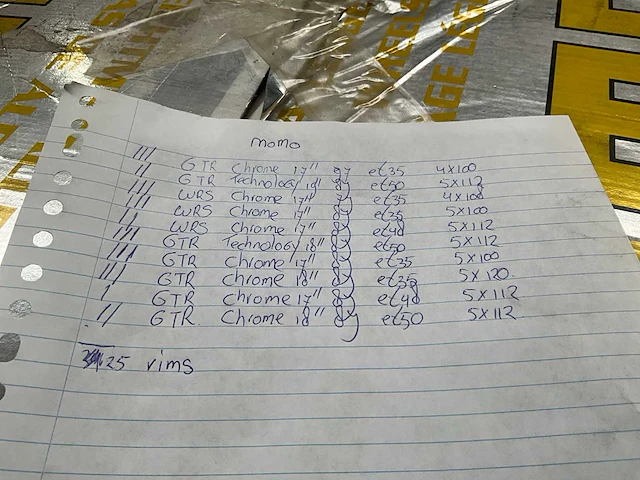 momo
III GTR Chrome 17" 8J et35 4x100
II GTR Technology 18" 8J et50 5x112
II WRS Chrome 17" 8J et35 4x100
II WRS Chrome 17" 8J et35 5x100
II WRS Chrome 17" 8J et48 5x112
III GTR Technology 18" 8J et50 5x112
III GTR Chrome 17" 8J et35 5x100
III GTR Chrome 18" 8J et35 5x120
I GTR Chrome 17" 8J et48 5x112
II GTR Chrome 18" 8J et50 5x112
25 rims